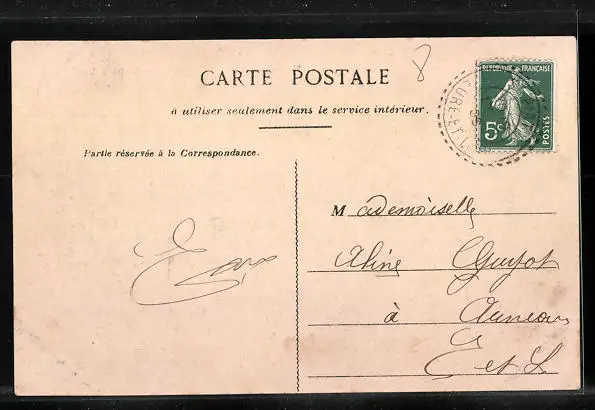 8
CARTE POSTALE
à utiliser seulement dans le service intérieur.
Partie réservée à la Correspondance.
REPUBLIQUE FRANÇAISE
5c
POSTES
EURE-ET-L
Mademoiselle
Aline Guyot
à Auneau
E et L